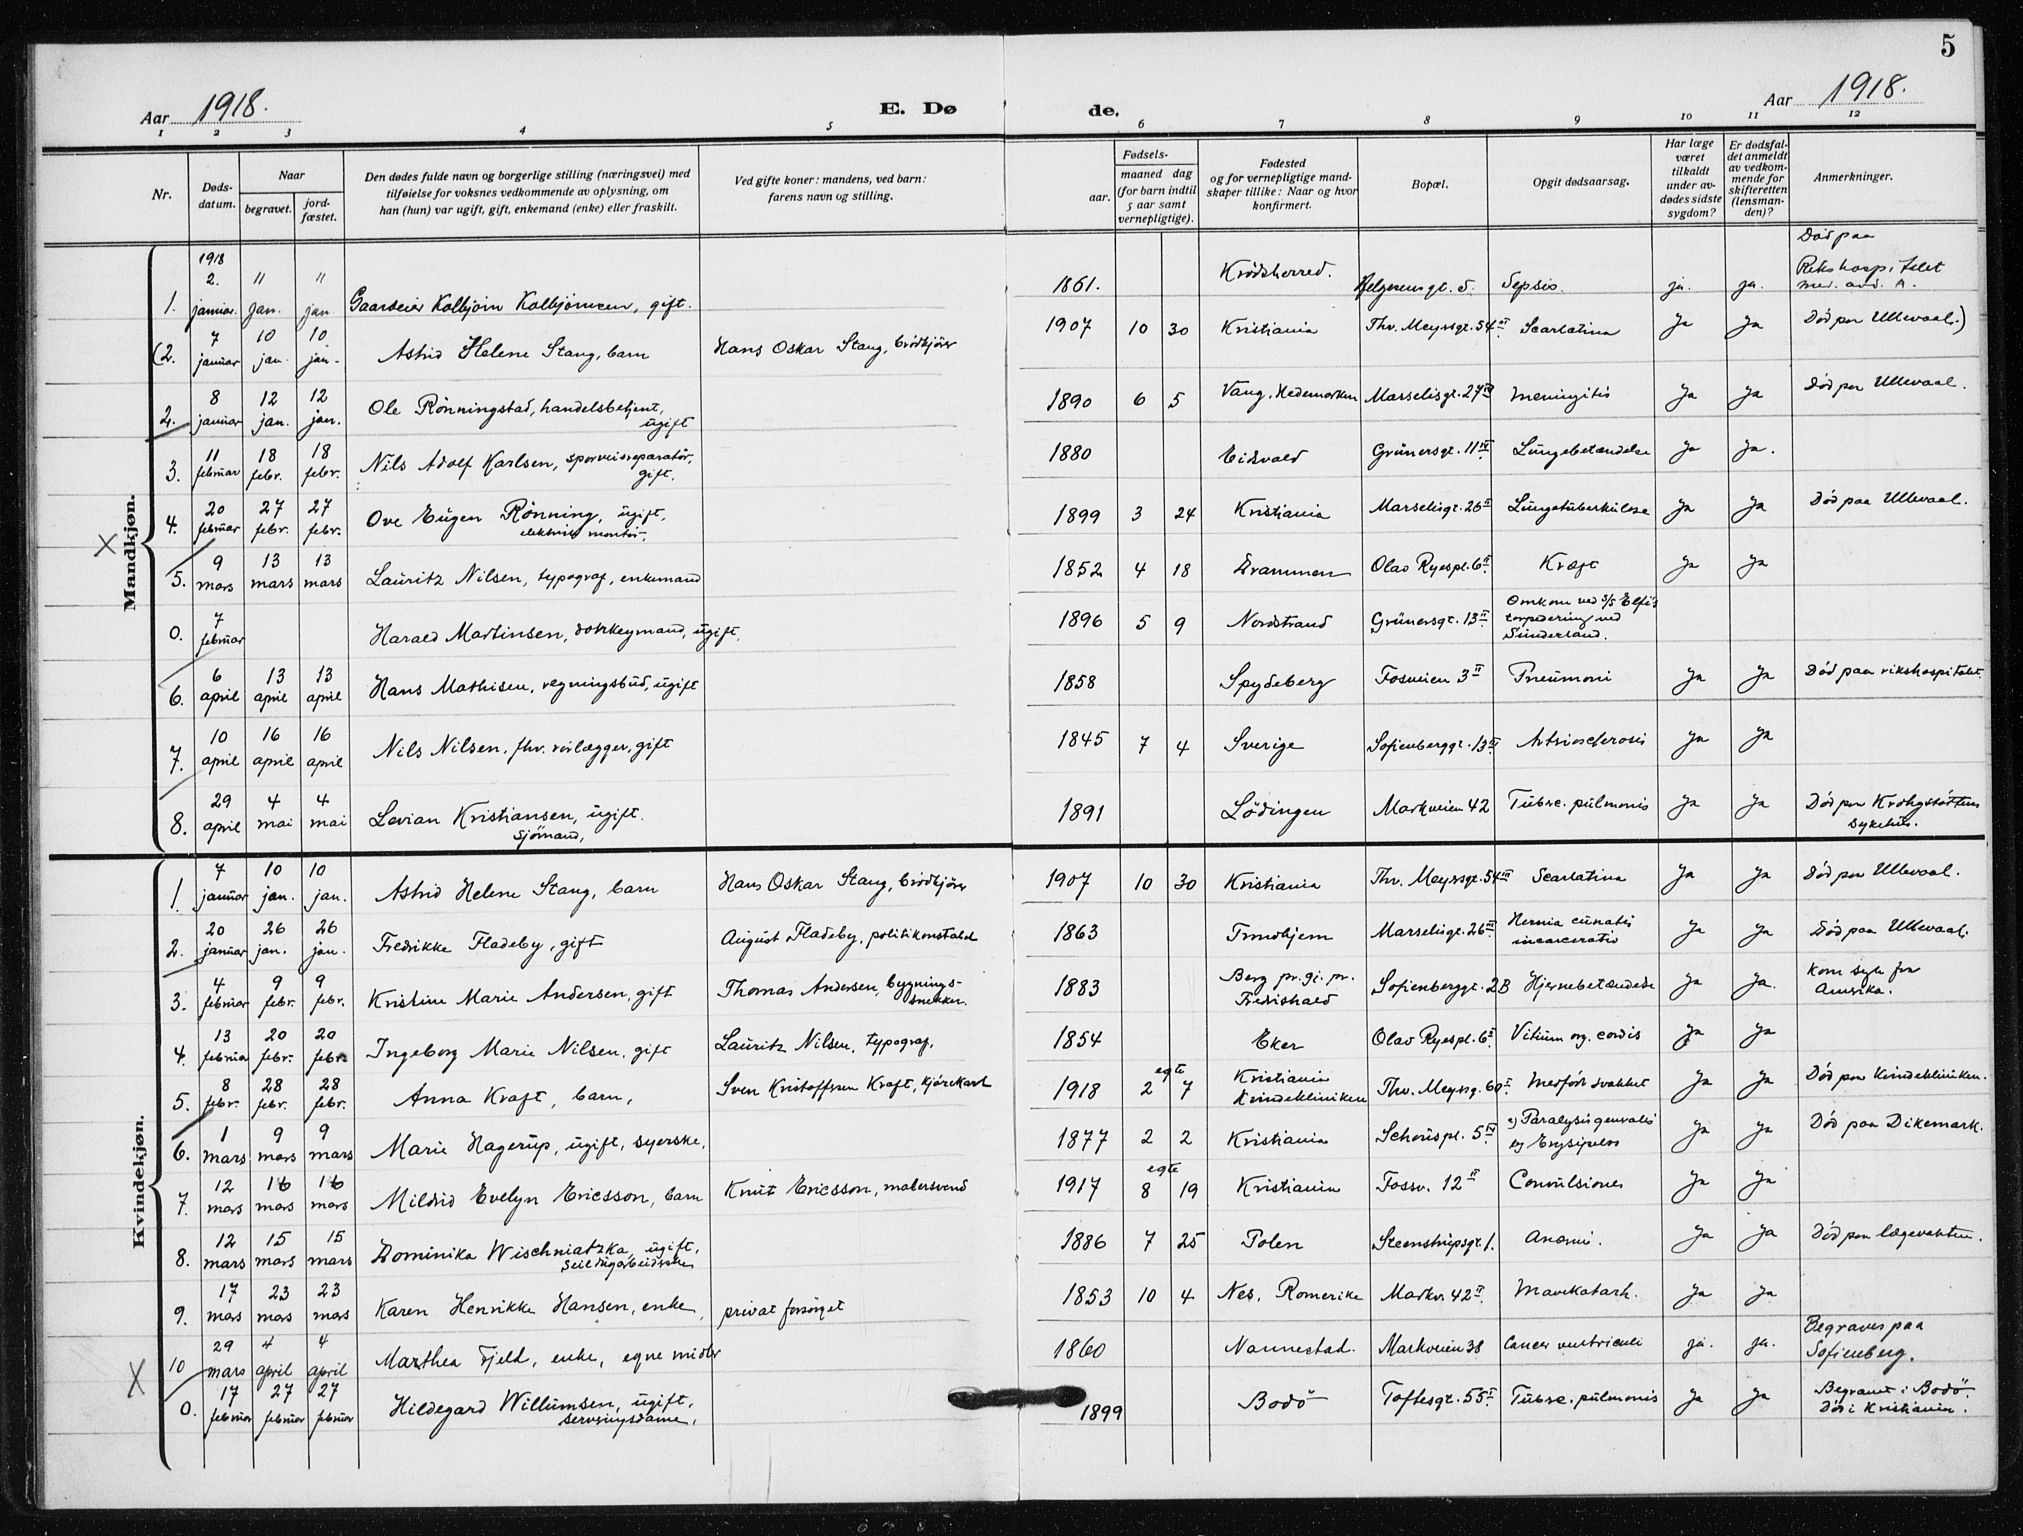 5
Aar 1918.
E. Dø de.
Aar 1918.
1 2 3 4 5 6 7 8 9 10 11 12
Nr.
Døds-
datum.
Naar
begravet.
jord-
fæstet.
Den dødes fulde navn og borgerlige stilling (næringsvei) med
tilføielse for voksnes vedkommende av oplysning, om
han (hun) var ugift, gift, enkemand (enke) eller fraskilt.
Ved gifte koner: mandens, ved barn:
farens navn og stilling.
Fødsels-
aar.
maaned dag
(for barn indtil
5 aar samt
vernepligtige).
Fødested
og for vernepligtige mand-
skaper tillike: Naar og hvor
konfirmert.
Bopæl.
Opgit dødsaarsag.
Har læge
været
tilkaldt
under av-
dødes sidste
sygdom?
Er dødsfal-
det anmeldt
av vedkom-
mende for
skifteretten
(lensman-
den)?
Anmerkninger.
Mandkjøn.
1918
1. 2. januar. " jan. " jan. Gaardeier Kolbjörn Kolbjörnsen, gift. 1861. Krødsherred. Helgesensgt. 5. Sepsis. ja. ja. Död paa
Rikshosp.
med. avd. A.
(2. 7 januar 10 jan. 10 jan. Astrid Helene Stang, barn Hans Oskar Stang, brödkjörer 1907 10 30 Kristiania Thv. Meyersgt. 54 III Scarlatina Ja Ja Död paa Ullevaal.)
2. 8 januar 12 jan. 12 jan. Ole Rönningstad, handelsbetjent,
ugift 1890 6 5 Vang, Hedemarken Marselisgt. 27 IV Meningitis Ja Ja Död paa Ullevaal.
3. 11 februar 18 febr. 18 febr. Nils Adolf Karlsen, sporveisreparatör,
gift. 1880 Eidsvold Grünersgt. 11 IV Lungebetændelse Ja Ja.
4. 20 februar 27 febr. 27 febr. Ove Eugen Rönning, ugift,
elektrisk montör. 1899 3 24 Kristiania Marselisgt. 26 II Lungetuberkulose Ja Ja Död paa Ullevaal.
X
5. 9 mars 13 mars 13 mars Lauritz Nilsen, typograf, enkemand 1852 4 18 Drammen Olav Ryespl. 6 II Kræft Ja Ja
0. 7 februar Harald Martinsen, donkeymand, ugift. 1896 5 9 Nordstrand Grünersgt. 13 II Omkom ved S/S Elfi's
torpedering ved
Sunderland.
6. 6 april 13 april 13 april Hans Mathisen, regningsbud, ugift 1858 Spydeberg Fosveien 3 II Pneumoni Ja Ja Död paa rikshospitalet.
7. 10 april 16 april 16 april Nils Nilsen, fhv. rörlægger, gift 1845 7 4 Sverige Sofienberggt. 13 III Artriosclerosis Ja Ja
8. 29 april 4 mai 4 mai Levian Kristiansen, ugift.
Sjömand, 1891 Lödingen Markveien 42 Tuberc. pulmonis Ja Ja Död paa Krohgstöttens
sykehus.
Kvindekjøn.
1. 7 januar 10 jan. 10 jan. Astrid Helene Stang, barn Hans Oskar Stang, brödkjörer 1907 10 30 Kristiania Thv. Meyersgt. 54 III Scarlatina Ja Ja Död paa Ullevaal.
2. 20 januar 26 jan. 26 jan. Fredrikke Fladeby, gift August Fladeby, politikonstabel 1863 Trondhjem Marselisgt. 26 III Hernia
incarceratio Ja Ja Död paa Ullevaal.
3. 4 februar 9 febr. 9 febr. Kristine Marie Andersen, gift Thomas Andersen, bygnings-
snekker. 1883 Berg pr.gj. pr.
Fredrikshald Sofienberggt. 2B Hjernebetændelse Ja Ja. Kom syk fra
Amerika.
4. 13 februar 20 febr. 20 febr. Ingeborg Marie Nilsen, gift Lauritz Nilsen, typograf. 1854 Eker Olav Ryespl. 6 II Vitium org. cordis Ja Ja
5. 8 febr. 28 febr. 28 febr. Anna Kraft, barn, Sven Kristoffersen Kraft, kjörekarl 1918 egte 2 7 Kristiania
Kvindekliniken Thv. Meyersg. 60 I Medfödt svakhet Ja Ja Död paa Kvindekliniken.
6. 1 mars 9 mars 9 mars Marie Hagerup, ugift, syerske. 1877 2 2 Kristiania Schouspl. 5 IV Paralysis generalis
Erysipelas Ja Ja Död paa Dikemark.
7. 12 mars 16 mars 16 mars Mildrid Evelyn Ericsson, barn Knut Ericsson, malersvend 1917 egte 8 19 Kristiania Fossv. 12 II Convulsiones Ja Ja
8. 12 mars 15 mars 15 mars Dominika Wischniatzka, ugift,
1886 7 25 Polen Steenstrupsgt. 1. Anæmi. Ja Ja Död paa lægevakten.
9. 17 mars 23 mars 23 mars Karen Henrikke Hansen, enke, privat forsörget 1853 10 4 Nes, Romerike Markv. 42 II Mavekatarh. Ja Ja
10 29 mars 4 april 4 april Marthea Fjeld, enke, egne midler 1860 Nannestad. Markveien 38 Cancer ventriculi ja. ja. Begraves paa
Sofienberg.
X
0. 17 februar 27 februar 27 februar Hildegard Willumsen, ugift,
serveringsdame, 1899 Bodö Toftesgt. 55 I Tuberc. pulmonis Ja Ja Begravet i Bodö.
Död i Kristiania.